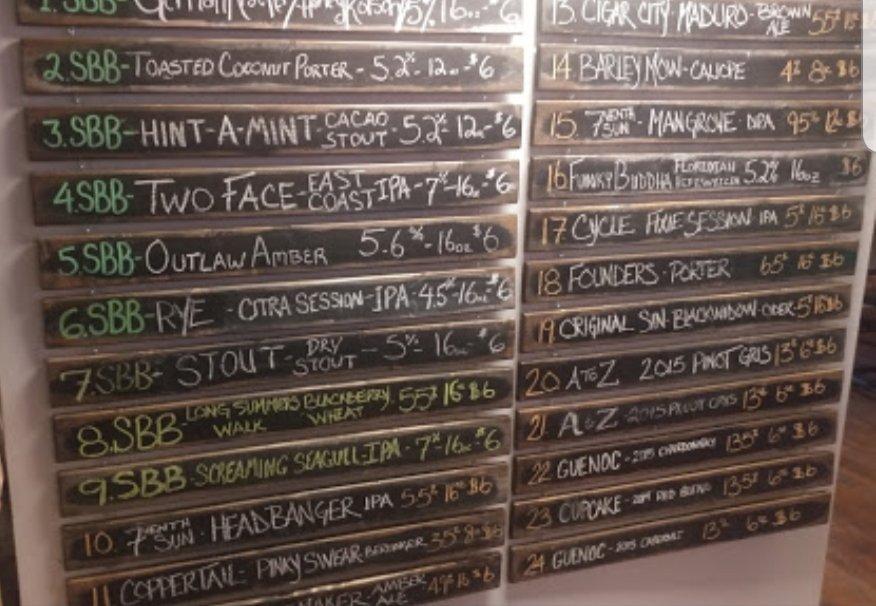 1.SBB- 5% 16oz $6
2.SBB-TOASTED COCONUT PORTER - 5.2%- 12oz- $6
3.SBB-HINT-A-MINT-CACAO STOUT-5.2%-12oz-$6
4.SBB-TWO FACE-EAST COAST IPA-7%-16oz-$6
5.SBB-OUTLAW AMBER 5.6%-16oz $6
6.SBB-RYE -CITRA SESSION-IPA-4.5%-16oz-$6
7.SBB- STOUT-DRY STOUT - 5%- 16oz- $6
8.SBB-LONG SUMMERS WALK BLACKBERRY WHEAT 5.5% 16oz $6
9.SBB-SCREAMING SEAGULL-IPA-7%-16oz-$6
10. 7VENTH SUN-HEADBANGER IPA 5.5% 16oz $6
11 COPPERTAIL- PINKY SWEAR 3.5% 8oz $6
AMBER ALE 16 $6
13. CIGAR CITY MADURO-BROWN ALE 5.5%
14 BARLEY MOW-CALIOPE 4% 8oz $6
15. 7VENTH SUN - MANGROVE DIPA 9.5% 12oz $6
16 FUNKY BUDDHA FLORIDIAN HEFEWEIZEN 5.2% 16oz $6
17 CYCLE FIXIE SESSION IPA 5% 16 $6
18 FOUNDERS-PORTER 6.5% 16oz $6
19 ORIGINAL SIN-BLACKWIDOW-CIDER-5% 16 $6
20 A TO Z 2015 PINOT GRIS 13% 6oz $6
21. A TO Z -2015 PINOT GRIS 13% 6oz $6
22 GUENOC-2015 CHARDONNAY 13.5% 6oz $6
23 CUPCAKE-2014 RED BLEND 13.5% 6oz $6
24 GUENOC-2015 13% 6oz $6